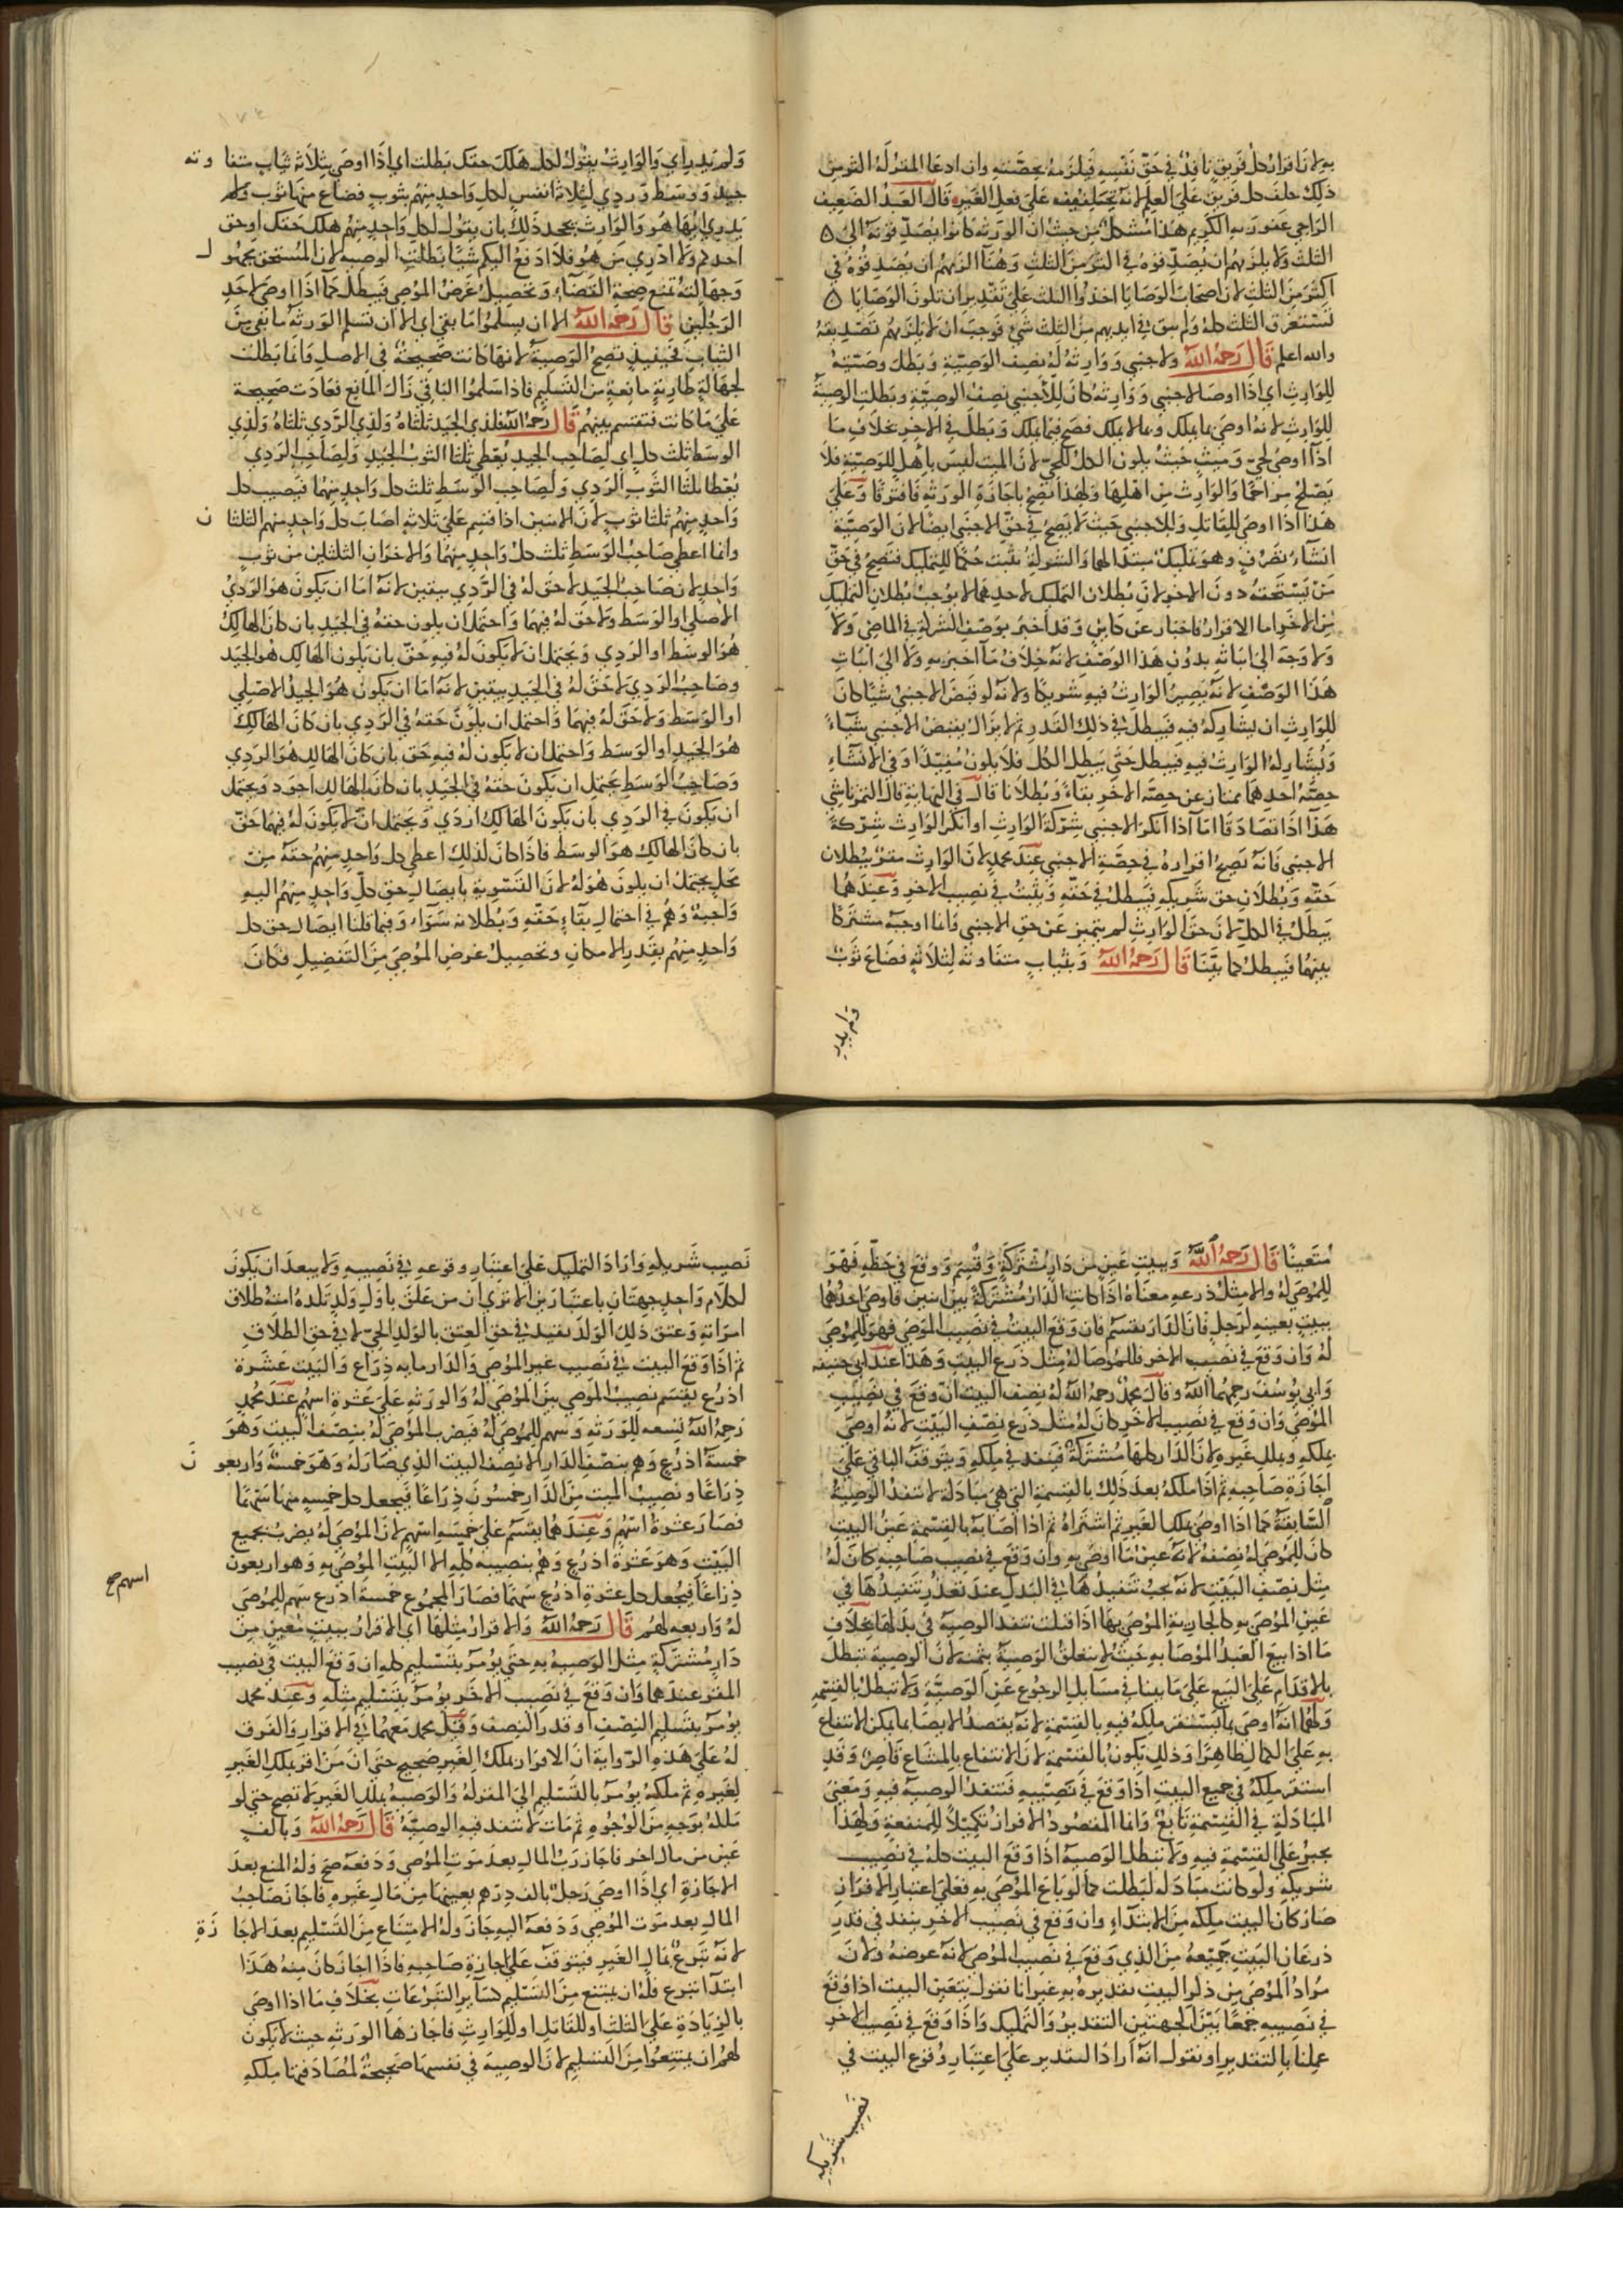 به ولان اقرار كل فريق نافذ في حق نفسه فيلزمه بحصته وان ادعا المقر له اكثر من
ذلك حلف كل فريق على العلم لانه تحليفه على فعل الغير قال العبد الضعيف
الراجي عفو ربه الكريم هذا مشكل من حيث ان الورثة كانوا يصدقونه الى
الثلث ولا يلزمهم ان يصدقوه في اكثر من الثلث وهنا الزمهم ان يصدقوه في
اكثر من الثلث لان اصحاب الوصايا اخذوا الثلث على تقدير ان تكون الوصايا
تستغرق الثلث كله ولم يبق في ايديهم من الثلث شي فوجب ان لا يلزمهم تصديقه
والله اعلم قال رحمه الله ولاجنبي ووارثه له نصف الوصية وبطل وصيته
للوارث اي اذا اوصا لاجنبي ووارثه كان للأجنبي نصف الوصية وبطلت الوصية
للوارث لانه اوصى بما يملك وبما لا يملك فصح فيما يملك وبطل في الاخر بخلاف ما
اذا اوصى لحي وميت حيث يكون الكل للحي لان الميت ليس باهل للوصية فلا
يصلح مزاحما والوارث من اهلها ولهذا تصح باجازة الورثة فافترقا وعلى
هذا اذا اوصى للقاتل وللاجنبي حيث لا يصح في حق الاجنبي ايضا لان الوصية
انشاء تصرف وهو تمليك مبتدا لهما والشركة تثبت حكما للتمليك فتصح في حق
من يستحقه دون الاخر لان بطلان التمليك لاحدهما لا يوجب بطلان التمليك
من الاخر اما الاقرار فاخبار عن كاين وقد اخبر بوصف الشركة في الماضي ولا
ولا وجه الى اثباته بدون هذا الوصف لانه خلاف ما اخبر به ولا الى اثبات
هذا الوصف لانه يصير الوارث فيه شريكا ولانه لو قبض الاجنبي شيا كان
للوارث ان يشاركه فيه فيبطل في ذلك القدر ثم لا يزال يقبض الاجنبي شياء
ويشاركه الوارث فيه فيبطل حتى يبطل الكل فلا يكون مفيدا وفي الانشاء
حصة احدهما ممتاز عن حصة الاخر بقاء وبطلانا قال في النهاية قال التمرتاشي
هذا اذا تصادقا اما اذا انكر الاجنبي شركة الوارث او انكر الوارث شركة
الاجنبي فانه يصح اقراره في حصة الاجنبي عند محمد لان الوارث مقر ببطلان
حقه وبطلان حق شريكه فيبطل في حقه ويثبت في نصيب الاخر وعندهما
يبطل في الكل لان حق الوارث لم يتميز عن حق الاجنبي وانما اوجبه مشتركا
بينهما فيبطل كما بينا قال رحمه الله وبثياب متفاوتة لثلاثة فضاع ثوب
ولم يدر
ولم يدر اي والوارث يقول لكل هلك حقك بطلت اي اذا اوصى بثلاثة ثياب متفا وته
جيد ووسط وردي لثلاثة انفس لكل واحد منهم بثوب فضاع منها ثوب ولم
يدري ايها هو والوارث يجحد ذلك بان يقول لكل واحد منهم هلك حقك او حق
احدكم ولا ادري من هو فلا ادفع اليكم شيا بطلت الوصيه لان المستحق مجهو ل
وجهالته تمنع صحة القضاء وتحصيل غرض الموصي فيبطل كما اذا اوصى لاحد
الرجلين قال رحمه الله الا ان يسلموا ما بقي اي الا ان تسلم الورثة ما بقي من
الثياب فحينيذ تصح الوصية لانها كانت صحيحة في الاصل وانما بطلت
لجهالة طارية مانعة من التسليم فاذا سلموا الباقي زال المانع فعادت صحيحة
على ما كانت فتقسم بينهم قال رحمه الله فلذي الجيد ثلثاه ولذي الردي ثلثاه ولذي
الوسط ثلث كل اي لصاحب الجيد يعطى ثلثا الثوب الجيد ولصاحب الردي
يعطا ثلثا الثوب الردي ولصاحب الوسط ثلث كل واحد منهما فيصيب كل
واحد منهم ثلثا ثوب لان الاثنين اذا قسم على ثلاثة اصاب كل واحد منهم الثلثا ن
وانما اعطي صاحب الوسط ثلث كل واحد منهما والاخران الثلثين من ثوب
واحد لان صاحب الجيد لا حق له في الردي بيقين لانه اما ان يكون هو الردي
الاصلي او الوسط ولا حق له فيهما واحتمل ان يكون حقه في الجيد بان كان الهالك
هو الوسط او الردي ويحتمل ان لا يكون له فيه حق بان يكون الهالك هو الجيد
وصاحب الردي لا حق له في الجيد بيقين لانه اما ان يكون هو الجيد الاصلي
او الوسط ولا حق له فيهما واحتمل ان يكون حقه في الردي بان كان الهالك
هو الجيد او الوسط واحتمل ان لا يكون له فيه حق بان كان الهالك هو الردي
وصاحب الوسط يحتمل ان يكون حقه في الجيد بان كان الهالك اجود ويحتمل
ان يكون في الردي بان يكون الهالك اردي ويحتمل ان لا يكون له فيهما حق
بان كان الهالك هو الوسط فاذا كان كذلك اعطي كل واحد منهم حقه من
محل يحتمل ان يكون هو له لان التسوية بايصال حق كل واحد منهم اليه
واجبة وهم في احتمال بقاء حقه وبطلانه سواء وفيما قلنا ايصال حق كل
واحد منهم بقدر الامكان وتحصيل غرض الموصي من التفضيل فكان
متعينا قال رحمه الله وببيت عين من دار مشتركة وقسم ووقع في حظه فهو
للموصى له والا مثل ذرعه معناه اذا كانت الدار مشتركة بين اثنين فاوصى احدهما
ببيت بعينه لرجل فان الدار يقسم فان وقع البيت في نصيب الموصي فهو للموصى
له وان وقع في نصيب الاخر فللموصا له مثل ذرع البيت وهذا عند ابي حنيفه
وابي يوسف رحمهما الله وقال محمد رحمه الله له نصف البيت ان وقع في نصيب
الموصي وان وقع في نصيب الاخر كان له مثل ذرع نصف البيت لانه اوصى
بملكه وبملك غيره لان الدار كلها مشتركة فينفذ في ملكه ويتوقف الباقي على
اجازة صاحبه ثم اذا ملكه بعد ذلك بالقسمة التي هي مبادلة لا تنفذ الوصية
السابقة كما اذا اوصى بملك الغير ثم اشتراه ثم اذا اصابه بالقسمة عين البيت
كان للموصى له نصفه لانه عين ما اوصى به وان وقع في نصيب صاحبه كان له
مثل نصف البيت لانه يجب تنفيذها في البدل عند تعذر تنفيذها في
عين الموصى به كالجارية الموصى بها اذا قتلت تنفذ الوصية في بدلها بخلاف
ما اذا بيع العبد الموصا به حيث لا يتعلق الوصية بثمنه لان الوصية تبطل
بالاقدام على البيع على ما بينا في مسايل الرجوع عن الوصية ولا تبطل بالقسمة
ولهما انه اوصى بما يستقر ملكه فيه بالقسمة لانه يقصد الايصا بما يمكن الانتفاع
به على الكمال ظاهرا وذلك يكون بالقسمة لان الانتفاع بالمشاع قاصر وقد
استقر ملكه في جميع البيت اذا وقع في نصيبه فتنفذ الوصية فيه ومعنى
المبادلة في القسمة تابع وانما المقصود الافراز تكميلا للمنفعة ولهذا
يجبر على القسمة فيه ولا تبطل الوصية اذا وقع البيت كله في نصيب
شريكه ولو كانت مبادلة لبطلت كما لو باع الموصى به فعلى اعتبار الافراز
صار كان البيت ملكه من الابتداء وان وقع في نصيب الاخر ينفذ في قدر
ذرعان البيت جميعه من الذي وقع في نصيب الموصي لانه عوضه ولان
مراد الموصي من ذكر البيت تقديره به غير انا نقول يتعين البيت اذا وقع
في نصيبه جمعا بين الجهتين التقدير والتمليك واذا وقع في نصيب الاخر
عملنا بالتقدير او نقول انه اراد التقدير على اعتبار وقوع البيت في
نصيب شريكه
نصيب شريكه واراد التمليك على اعتبار وقوعه في نصيبه ولا يبعد ان يكون
لكلام واحد جهتان باعتبارين الا ترى ان من علق باول ولد تلده امته طلاق
امراته وعتق ذلك الولد يتقيد في حق العتق بالولد الحي لا في حق الطلاق
ثم اذا وقع البيت في نصيب غير الموصي والدار مايه ذراع والبيت عشرة
اذرع يقسم نصيب الموصي بين الموصى له والورثه على عشرة اسهم عند محمد
رحمه الله تسعه للورثه وسهم للموصى له فيضرب الموصى له بنصف البيت وهو
خمسة اذرع وهم بنصف الدار الا نصف البيت الذي صار له وهو خمسة واربعو ن
ذراعا ونصيب الميت من الدار خمسون ذراعا فيجعل كل خمسه منها سهما
فصار عشرة اسهم وعندهما يقسم على خمسه اسهم لان الموصى له يضرب بجميع
البيت وهو عشرة اذرع وهم بنصيبه كله الا البيت الموصى به وهو اربعون
ذراعا فيجعل كل عشرة اذرع سهما فصار المجموع خمسة اذرع سهم للموصى
اسهم صح
له واربعه لهم قال رحمه الله والاقرار مثلها اي الاقرار ببيت معين من
دار مشتركة مثل الوصية به حتى يؤمر بتسليم كله ان وقع البيت في نصيب
المقر عندهما وان وقع في نصيب الاخر يؤمر بتسليم مثله وعند محمد
يؤمر بتسليم النصف او قدر النصف وقيل محمد معهما في الاقرار والفرق
له على هذه الرواية ان الاقرار بملك الغير صحيح حتى ان من اقر بملك الغير
لغيره ثم ملكه يؤمر بالتسليم الى المقر له والوصية بملك الغير لا تصح حتى لو
ملكه بوجه من الوجوه ثم مات لا تنفذ فيه الوصية قال رحمه الله وبالف
عين من مال اخر فاجاز رب المال بعد موت الموصي ودفعه صح وله المنع بعد
الاجازة اي اذا اوصى رجل بالف درهم بعينها من مال غيره فاجاز صاحب
المال بعد موت الموصي ودفعه اليه جاز وله الامتناع من التسليم بعد الاجا زة
لانه تبرع بمال الغير فيتوقف على اجازة صاحبه فاذا اجاز كان منه هذا
ابتدا تبرع فله ان يمتنع من التسليم كساير التبرعات بخلاف ما اذا اوصى
بالزيادة على الثلث او للقاتل او للوارث فاجازها الورثه حيث لا يكون
لهم ان يمتنعوا من التسليم لان الوصية في نفسها صحيحة لمصادفتها ملكه